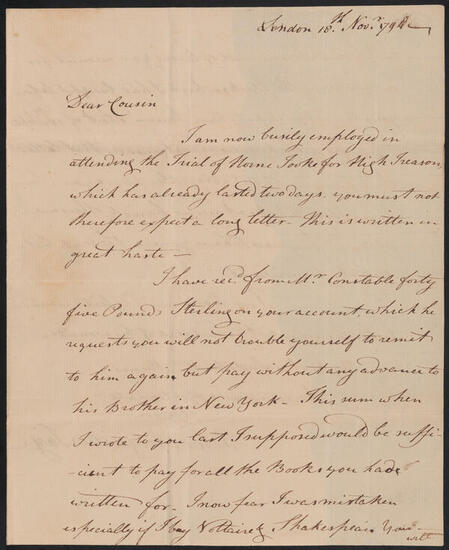 London 18.th Nov.r 1794
Dear Cousin
I am now busily employed in
attending the Trial of Horne Tooke for High Treason,
which has already lasted two days. you must not
therefore expect a long letter - This is written in
great haste -
I have rec.d from Mr. Constable forty
five Pounds Sterling on your account, which he
requests you will not trouble yourself to remit
to him again but pay without any advance to
his Brother in New York - This sum when
I wrote to you last I supposed would be suffi-
-cient to pay for all the Books you had
written for - I now fear I was mistaken
especially if I buy Voltaire & Shakespear. You
will